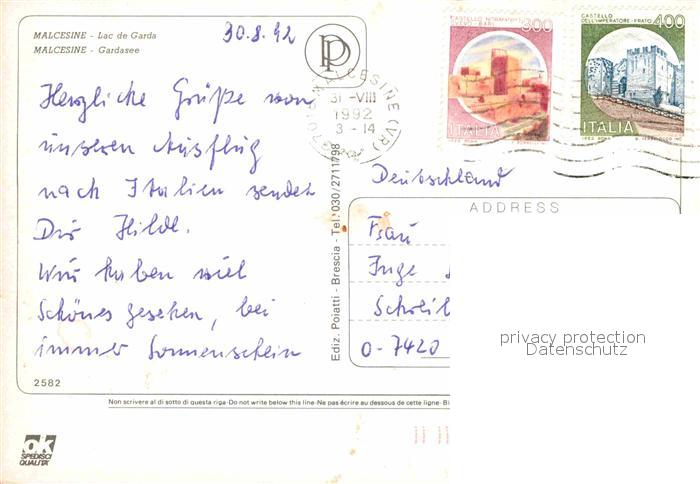 MALCESINE - Lac de Garda
MALCESINE - Gardasee
30.8.92
Herzliche Grüße von
unseren Ausflug
nach Italien sendet
Dir Hilde.
Wir haben viel
Schönes gesehen, bei
immer Sonnenschein
2582
OK
SPEDISCI
QUALITÀ
Ediz. Poiatti - Brescia - Tel. 030/2711798
MALCESINE (VR)
31-VIII
1992
3-14
CASTELLO NORMANNO
SVEVO - BARI
300
ITALIA
CASTELLO
DELL'IMPERATORE-PRATO
400
ITALIA
Deutschland
ADDRESS
Frau
Inge
Schreib
O-7420
Non scrivere al di sotto di questa riga-Do not write below this line-Ne pas écrire au dessous de cette ligne-Bi
privacy protection
Datenschutz